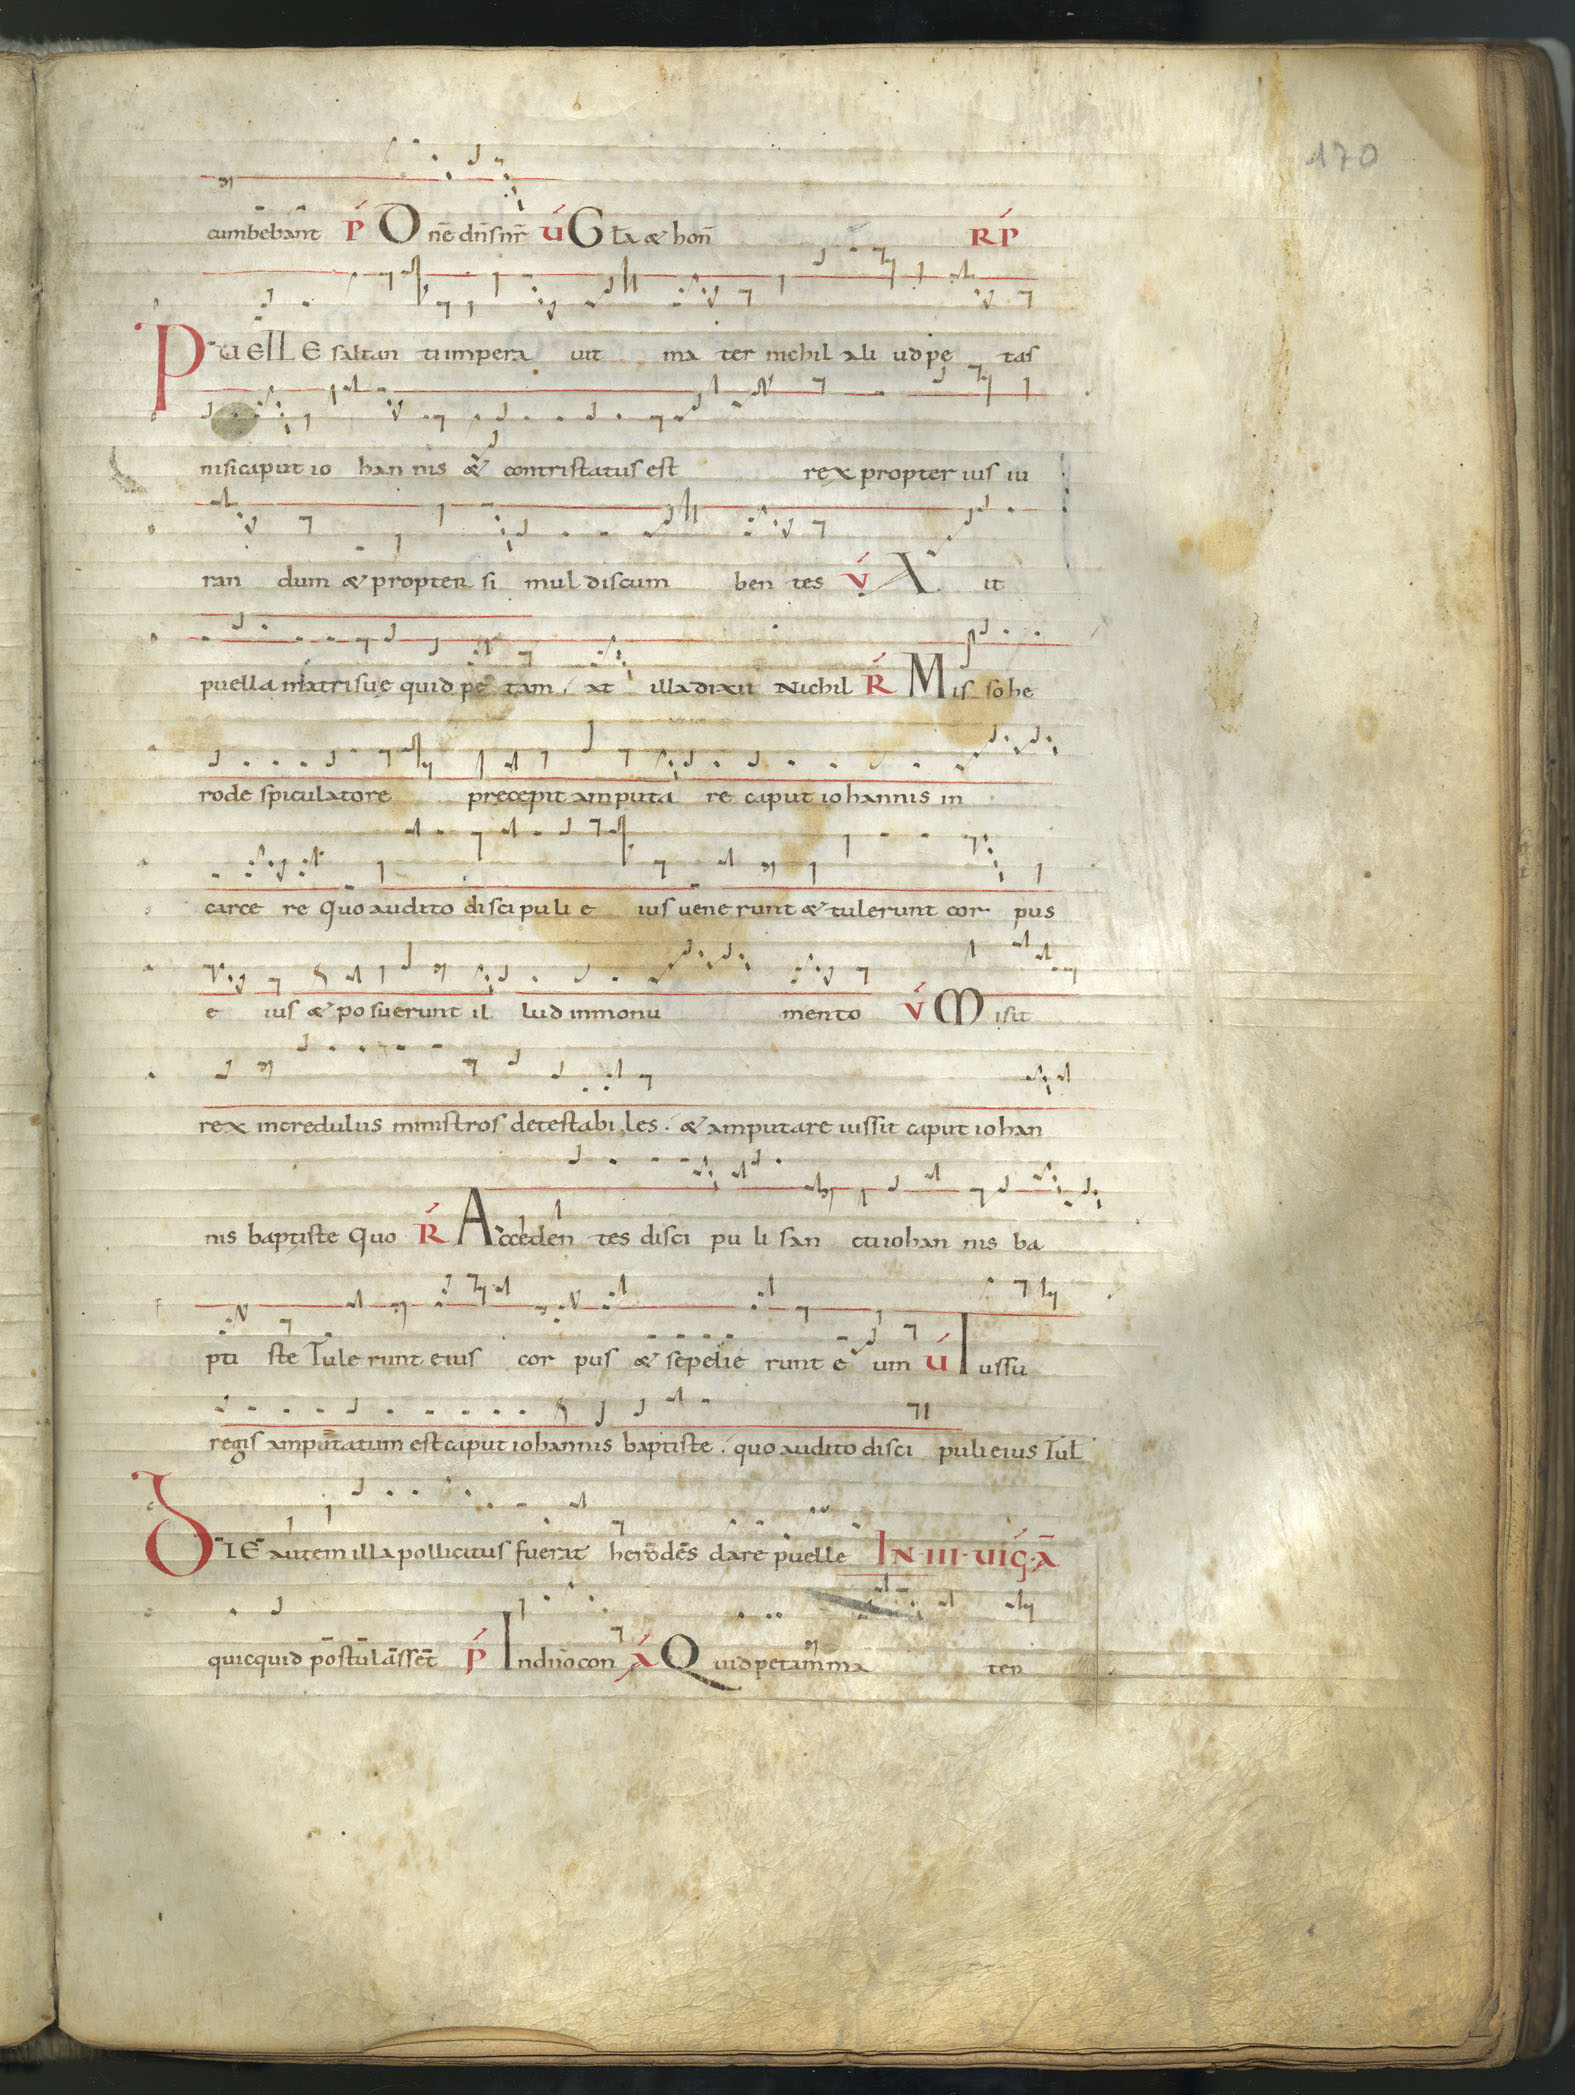 170
cumbēbant P O nē dn̄s nr̄ V Gła & hon̄ RP
PUELLE saltan ti impera uit ma ter nichil ali ud pe tas
nisi caput io han nis & contristatus est rex propter ius iu
ran dum & propter si mul discum ben tes V A it
puella matri suę quid pe tam . at illa dixit Nichil R Mis so he
rode spiculatore precepit amputa re caput iohannis in
carce re Quo audito discipuli e ius uene runt & tulerunt cor pus
e ius & posuerunt il lud inmonu mento V Misit
rex incredulus ministros detestabi les . & amputare iussit caput iohan
nis baptiste Quo R Acceden tes disci pu li san cti iohan nis ba
pti ste Tule runt eius cor pus & sepelie runt e um V Iussu
regis amputatum est caput iohannis baptiste . quo audito disci puli eius Tul
DIE autem illa pollicitus fuerat herodes dare puelle IN III UIG A
quicquid postulasset P In diuo con A Quid petam ma ter